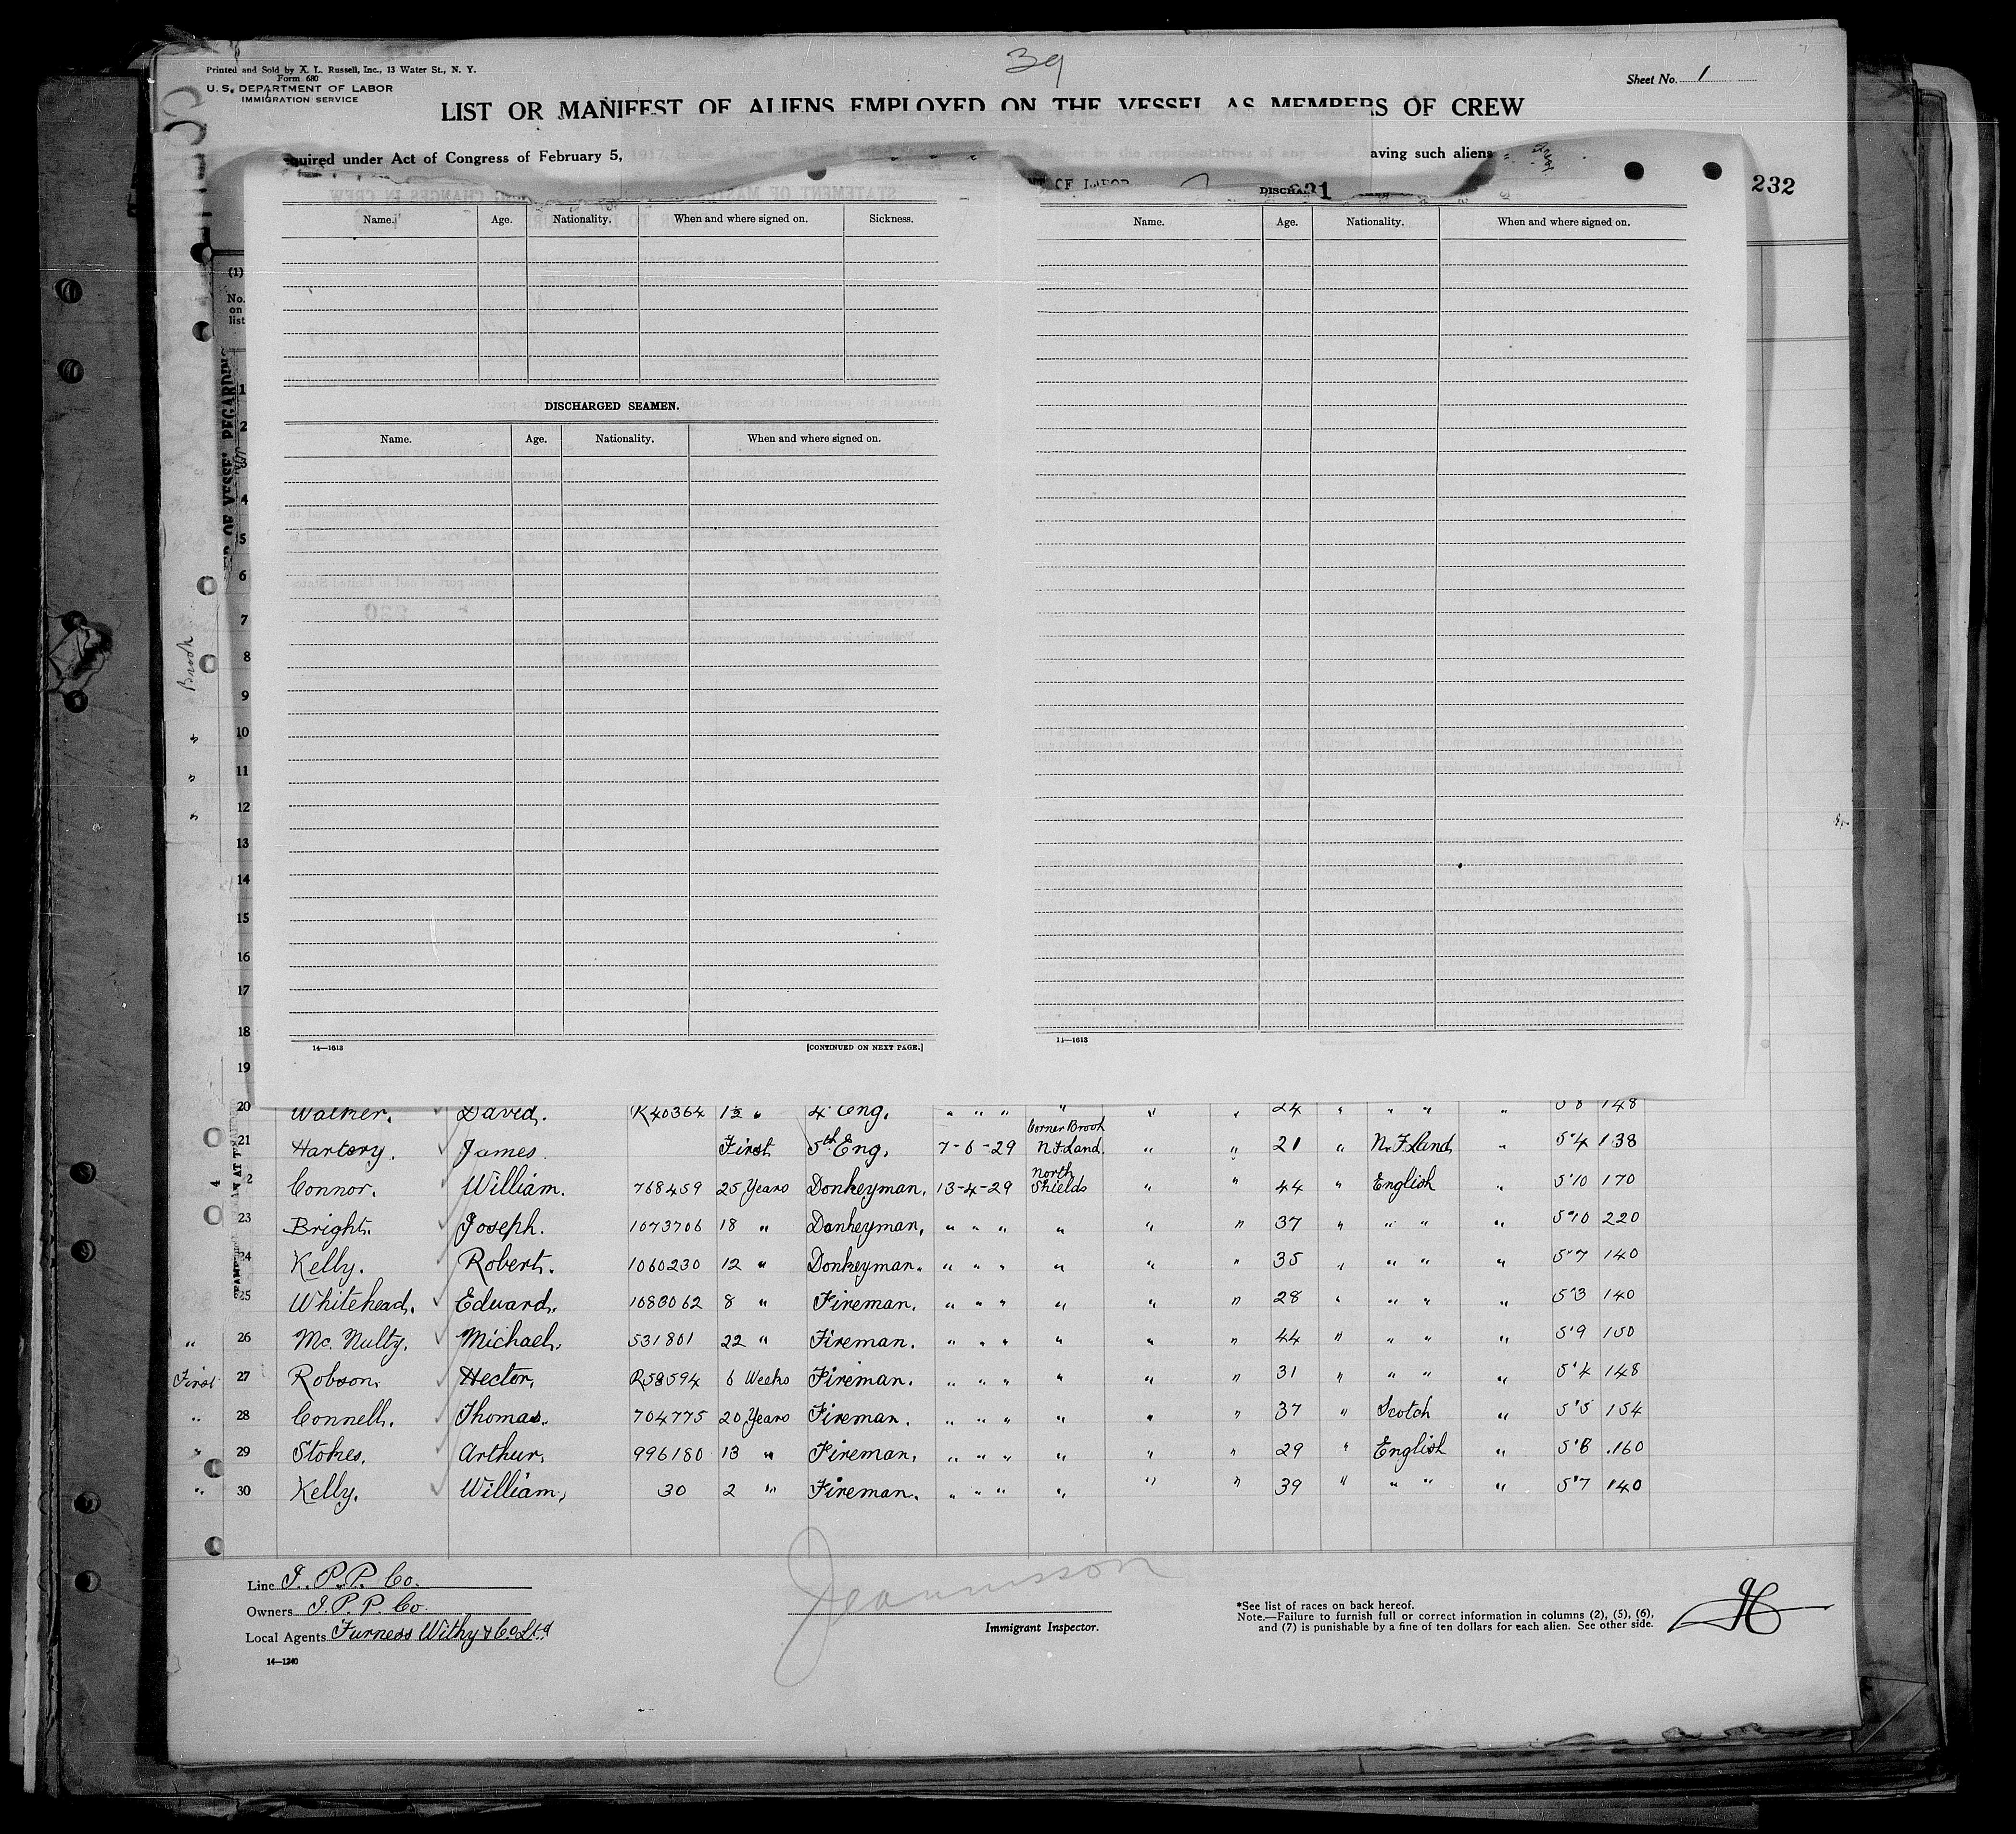 39
Printed and Sold by X. L. Russell, Inc., 13 Water St., N. Y.
Form 680
U. S. DEPARTMENT OF LABOR
IMMIGRATION SERVICE
Sheet No. 1
LIST OR MANIFEST OF ALIENS EMPLOYED ON THE VESSEL AS MEMBERS OF CREW
quired under Act of Congress of February 5, aving such aliens
232
OF LABOR DISCHA 231
Name. Age. Nationality. When and where signed on. Sickness.
Name. Age. Nationality. When and where signed on.
(1)
No.
on
list
DISCHARGED SEAMEN.
Name. Age. Nationality. When and where signed on.
1
2
3
4
5
6
7
8
9
10
11
12
13
14
15
16
17
18
19
Brook
14—1613 [CONTINUED ON NEXT PAGE.] 14—1613
20 Walker. David. R40364 1½ " 4 Eng. " " " " " " 24 " " " " 5 8 148
21 Hartery. James. First 5th Eng. 7-6-29 Corner Brook N.F.Land. " " 21 " N.F.Land " 5'4 138
2 Connor. William. 768459 25 Years Donkeyman. 13-4-29 North Shields " " 44 " English " 5'10 170
23 Bright. Joseph. 1073706 18 " Donkeyman. " " " " " " 37 " " " " 5'10 220
24 Kelly. Robert. 1060230 12 " Donkeyman. " " " " " " 35 " " " " 5'7 140
25 Whitehead. Edward. 1083062 8 " Fireman. " " " " " " 28 " " " " 5'3 140
" 26 Mc. Nulty. Michael. 531801 22 " Fireman. " " " " " " 44 " " " " 5'9 150
First 27 Robson. Hector. R58594 6 Weeks Fireman. " " " " " " 31 " " " " 5'4 148
" 28 Connell. Thomas. 704775 20 Years Fireman. " " " " " " 37 " Scotch " 5'5 154
" 29 Stokes. Arthur. 996180 13 " Fireman. " " " " " " 29 " English " 5'8 160
" 30 Kelly. William. 30 2 " Fireman. " " " " " " 39 " " " " 5'7 140
Line I. P. P. Co.
Owners I. P. P. Co.
Local Agents Furness Withy & Co Ltd
14—1240
Immigrant Inspector.
*See list of races on back hereof.
Note.—Failure to furnish full or correct information in columns (2), (5), (6),
and (7) is punishable by a fine of ten dollars for each alien. See other side.